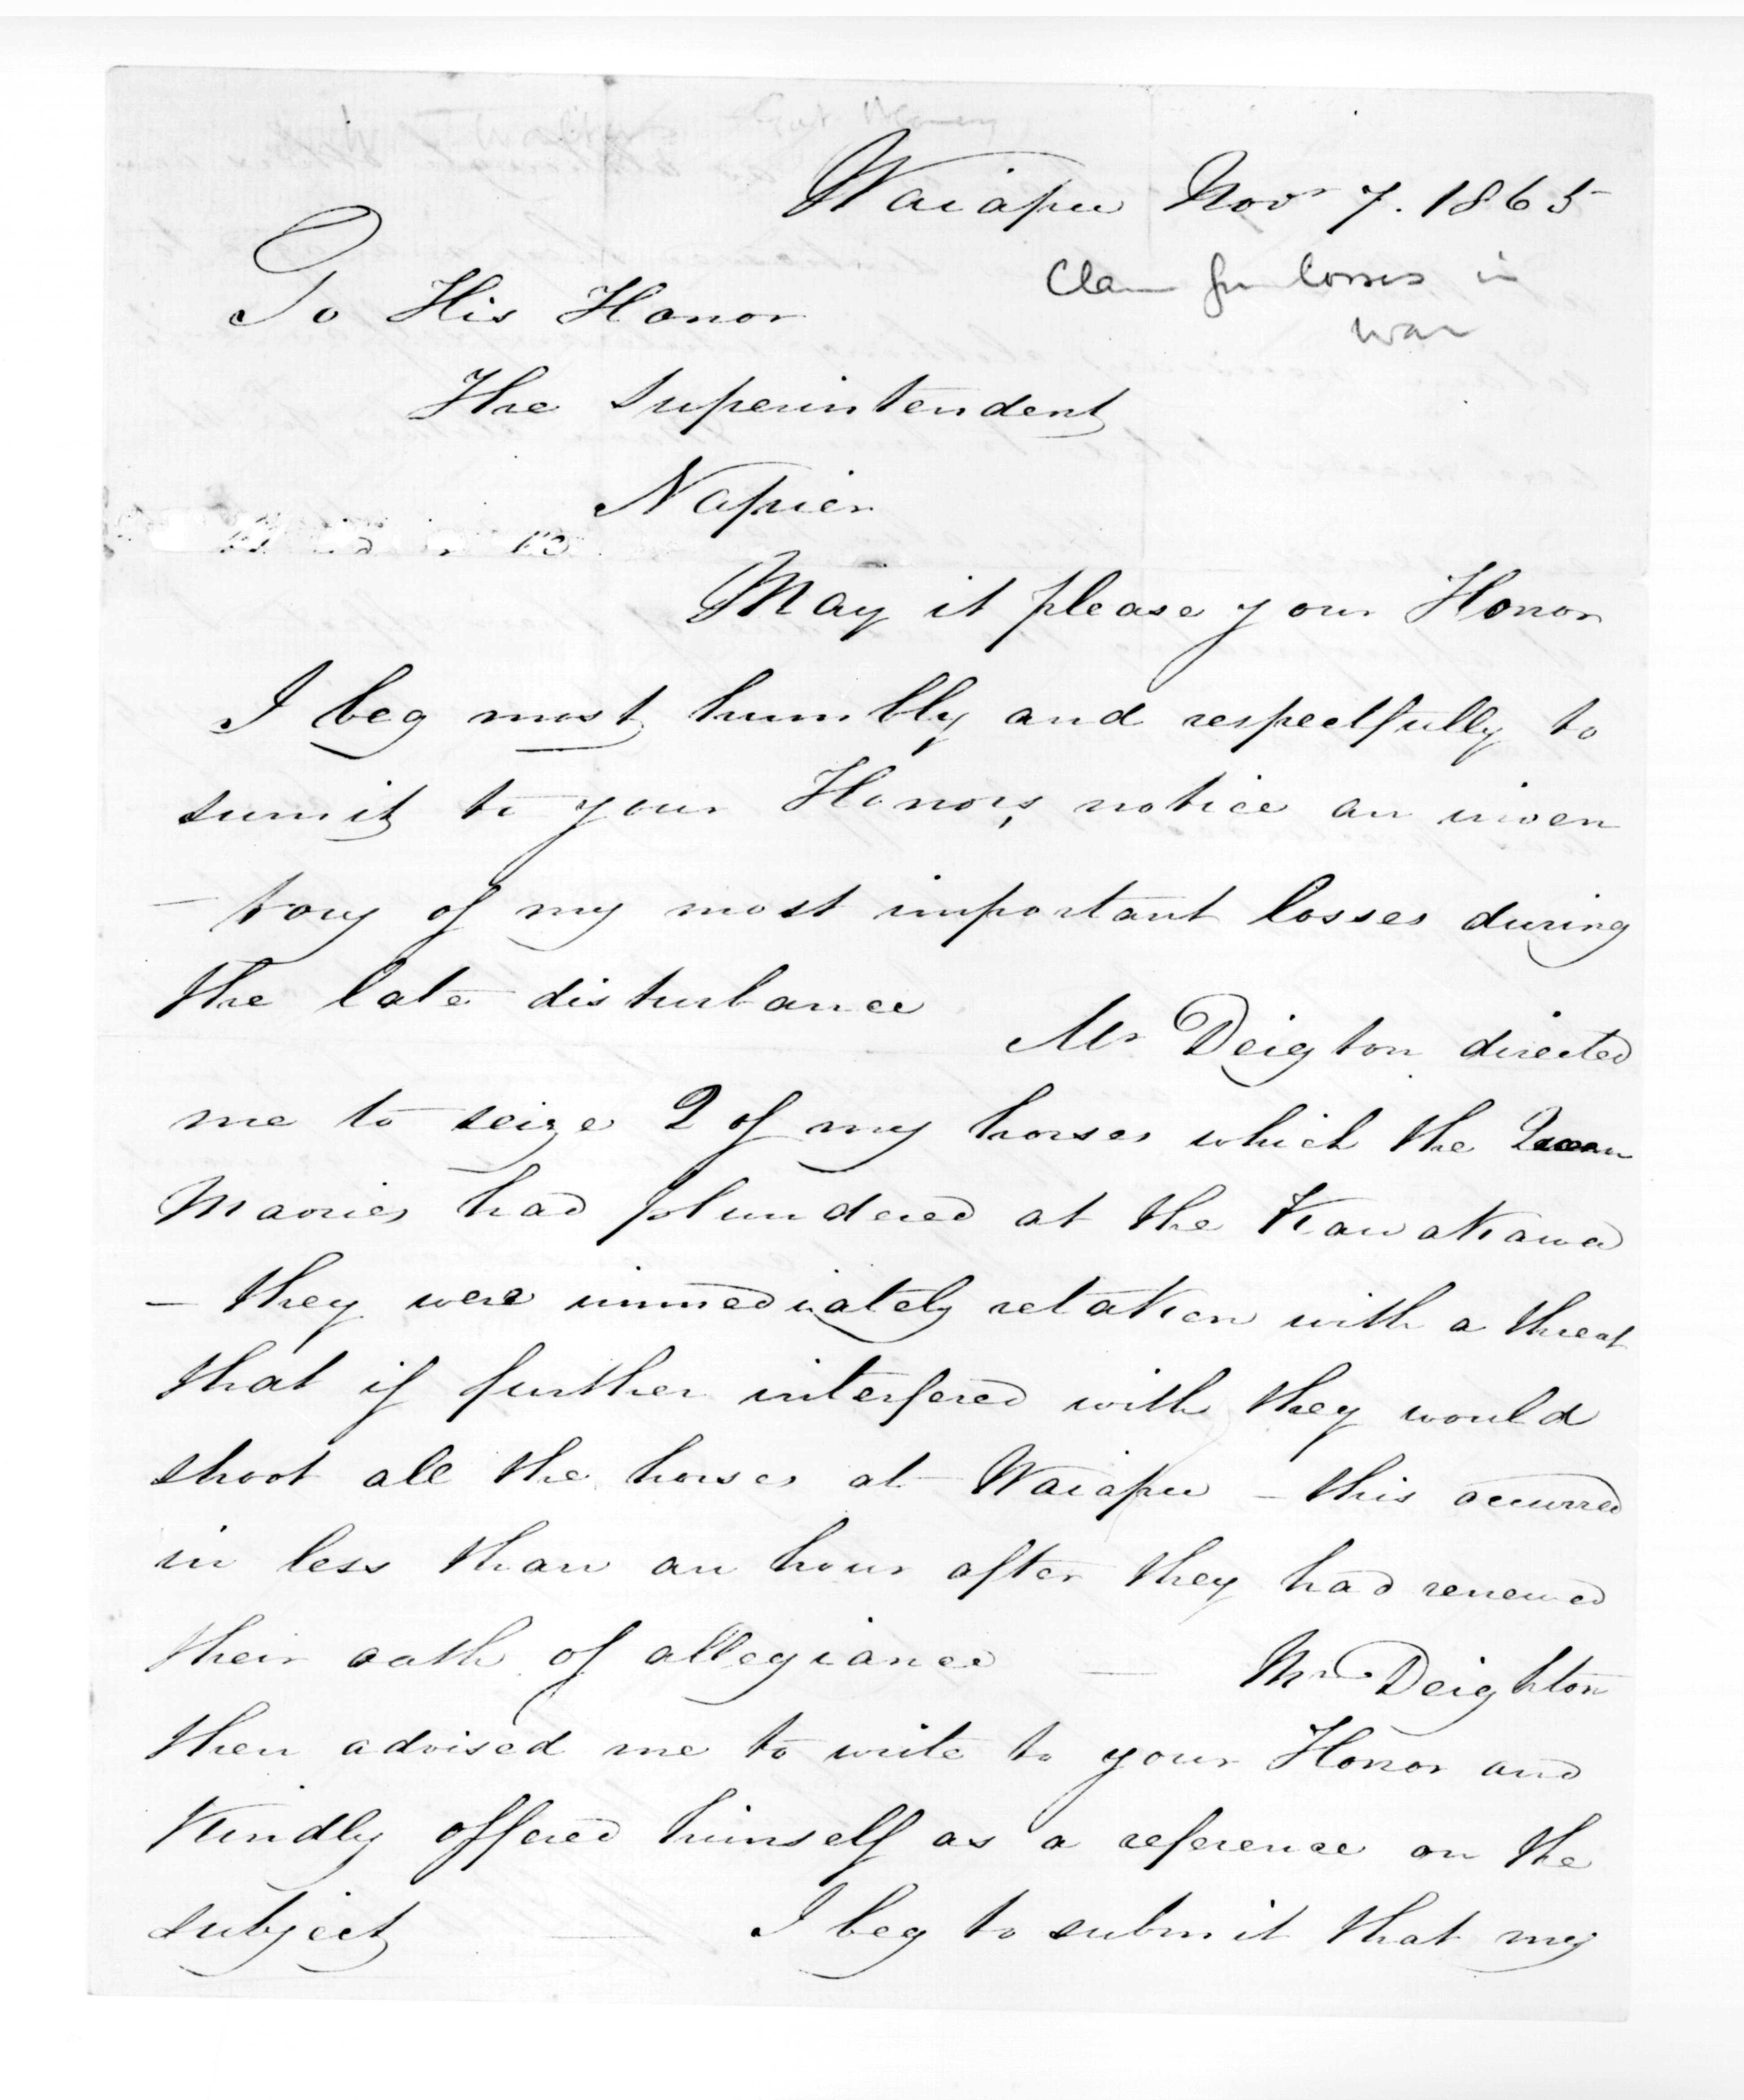 Waiapu Novr 7. 1865
Claim for losses in
war
To His Honor
The Superintendent
Napier
May it please your Honor
I beg most humbly and respectfully to
sumit to your Honors, notice an inven
- tory of my most important losses during
the late disturbance Mr Deigton directed
me to seize 2 of my horses which the Queen
Maories had plundered at the Kawakawa
- they were immediately retaken with a threat
that if further interfered with they would
shoot all the horses at Waiapu - this occurred
in less than an hour after they had renewed
their oath of allegiance — Mr Deighton
then advised me to write to your Honor and
kindly offered himself as a reference on the
subject — I beg to submit that my